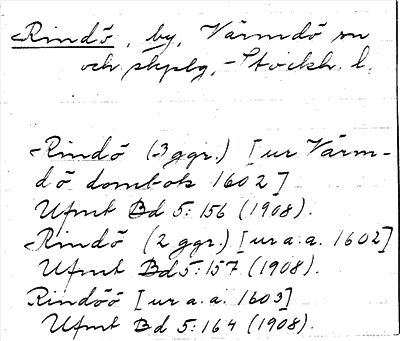 Rindö, by, Värmdö sn
och skplg, Stockh. l.
Rindö (3 ggr.) [ur Värm-
dö dombok 1602]
Ufmt Bd 5:156 (1908).
Rindö (2 ggr.) [ur a.a. 1602]
Ufmt Bd 5:157 (1908).
Rindöö [ur a.a. 1603]
Ufmt Bd 5:164 (1908).